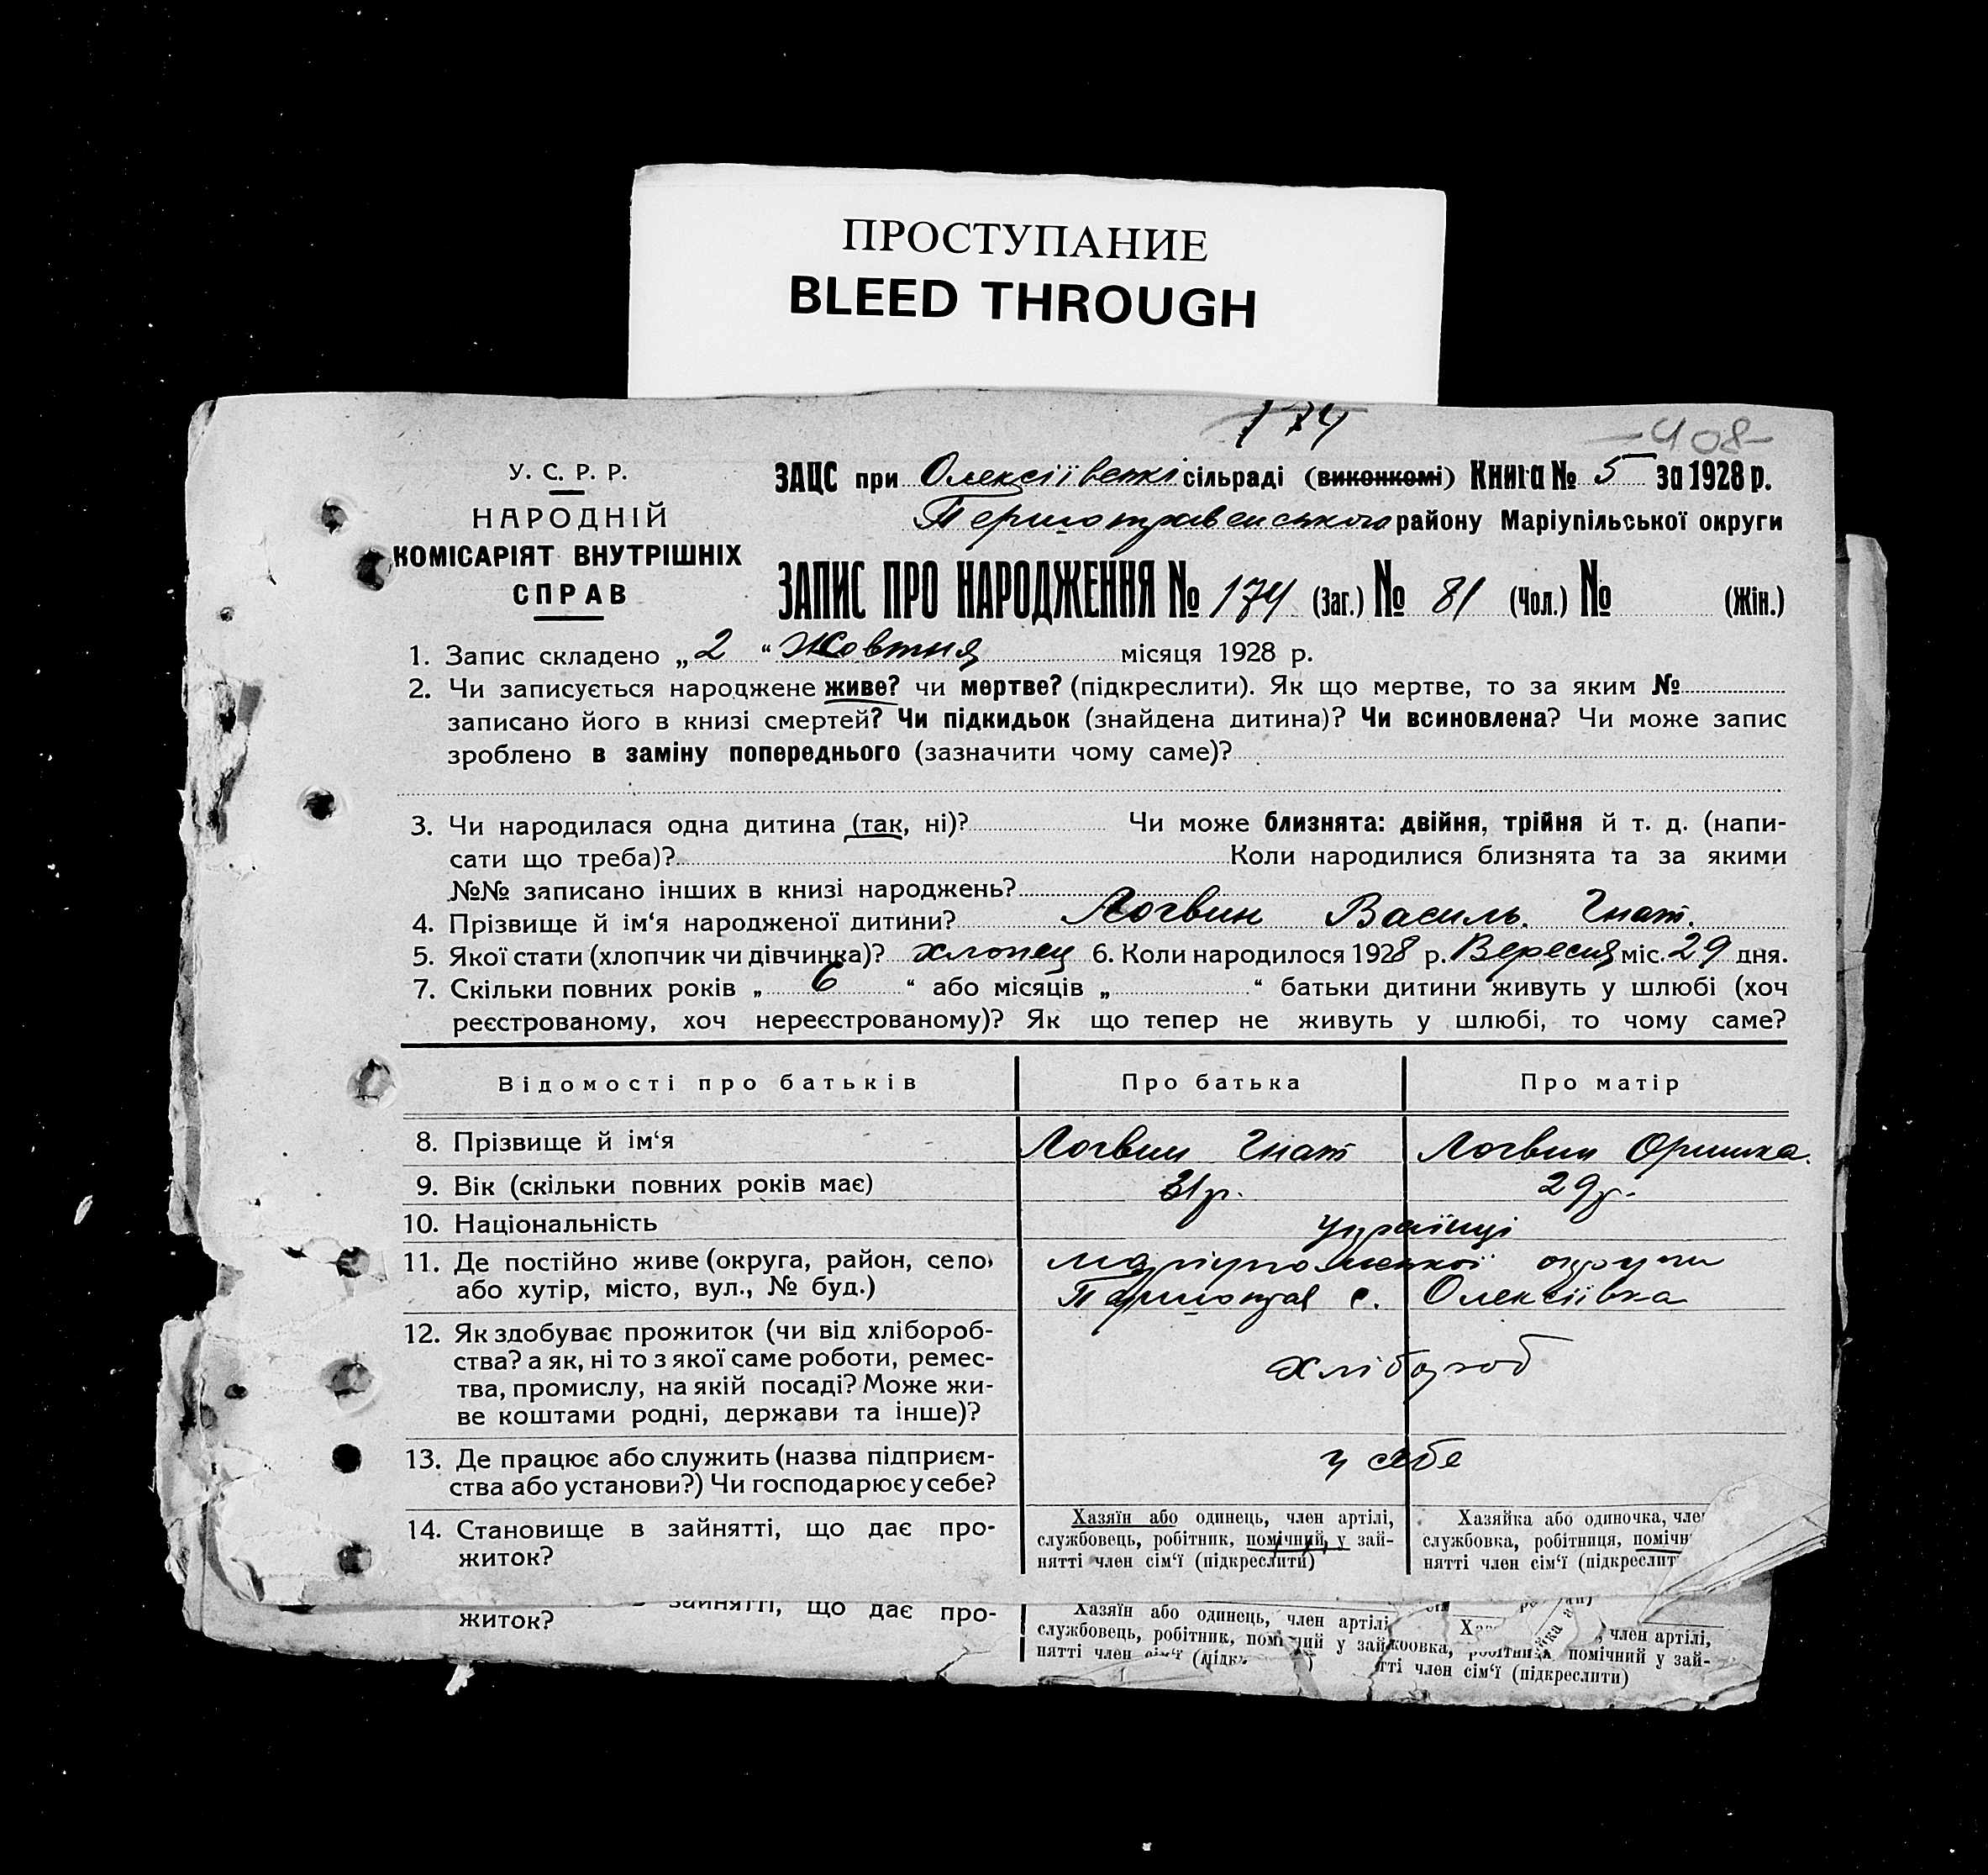 ПРОСТУПАНИЕ
BLEED THROUGH
174
408
У. С. Р. Р.
НАРОДНІЙ
КОМІСАРІЯТ ВНУТРІШНІХ
СПРАВ
ЗАЦС при Олексіївській сільраді (виконкомі) Книга № 5 за 1928 р.
Першотравенського району Маріупільської округи
ЗАПИС ПРО НАРОДЖЕННЯ № 174 (Заг.) № 81 (Чол.) № (Жін.)
1. Запис складено „2“ Жовтня місяця 1928 р.
2. Чи записується народжене живе? чи мертве? (підкреслити). Як що мертве, то за яким №
записано його в книзі смертей? Чи підкидьок (знайдена дитина)? Чи всиновлена? Чи може запис
зроблено в заміну попереднього (зазначити чому саме)?
3. Чи народилася одна дитина (так, ні)? Чи може близнята: двійня, трійня й т. д. (напи-
сати що треба)? Коли народилися близнята та за якими
№№ записано інших в книзі народжень?
4. Прізвище й ім‘я народженої дитини? Логвин Василь. Гнат.
5. Якої стати (хлопчик чи дівчинка)? хлопец 6. Коли народилося 1928 р. Вересня міс. 29 дня.
7. Скільки повних років „ 6 “ або місяців „ “ батьки дитини живуть у шлюбі (хоч
реєстрованому, хоч нереєстрованому)? Як що тепер не живуть у шлюбі, то чому саме?
Відомості про батьків Про батька Про матір
8. Прізвище й ім‘я Логвин Гнат Логвин Оришка.
9. Вік (скільки повних років має) 31 р. 29 р.
10. Національність Українці
11. Де постійно живе (округа, район, село,
або хутір, місто, вул., № буд.)
округи
Першотрав с. Олексіївка
12. Як здобуває прожиток (чи від хлібороб-
ства? а як, ні то з якої саме роботи, ремес-
тва, промислу, на якій посаді? Може жи-
ве коштами родні, держави та інше)?
хлібороб
13. Де працює або служить (назва підприєм-
ства або установи?) Чи господарює у себе?
у себе
14. Становище в зайнятті, що дає про-
житок?
Хазяїн або одинець, член артілі,
службовець, робітник, помічний, у зай-
нятті член сім‘ї (підкреслити)
Хазяйка або одиночка, член
службовка, робітниця, помічн
нятті член сім‘ї (підкреслит
зайнятті, що дає про-
житок?
Хазяїн або одинець, член артілі
службовець, робітник, помічний у зай
нятті член сім‘ї
член артілі,
робітниця помічний у зай-
тті член сім‘ї (підкреслити)